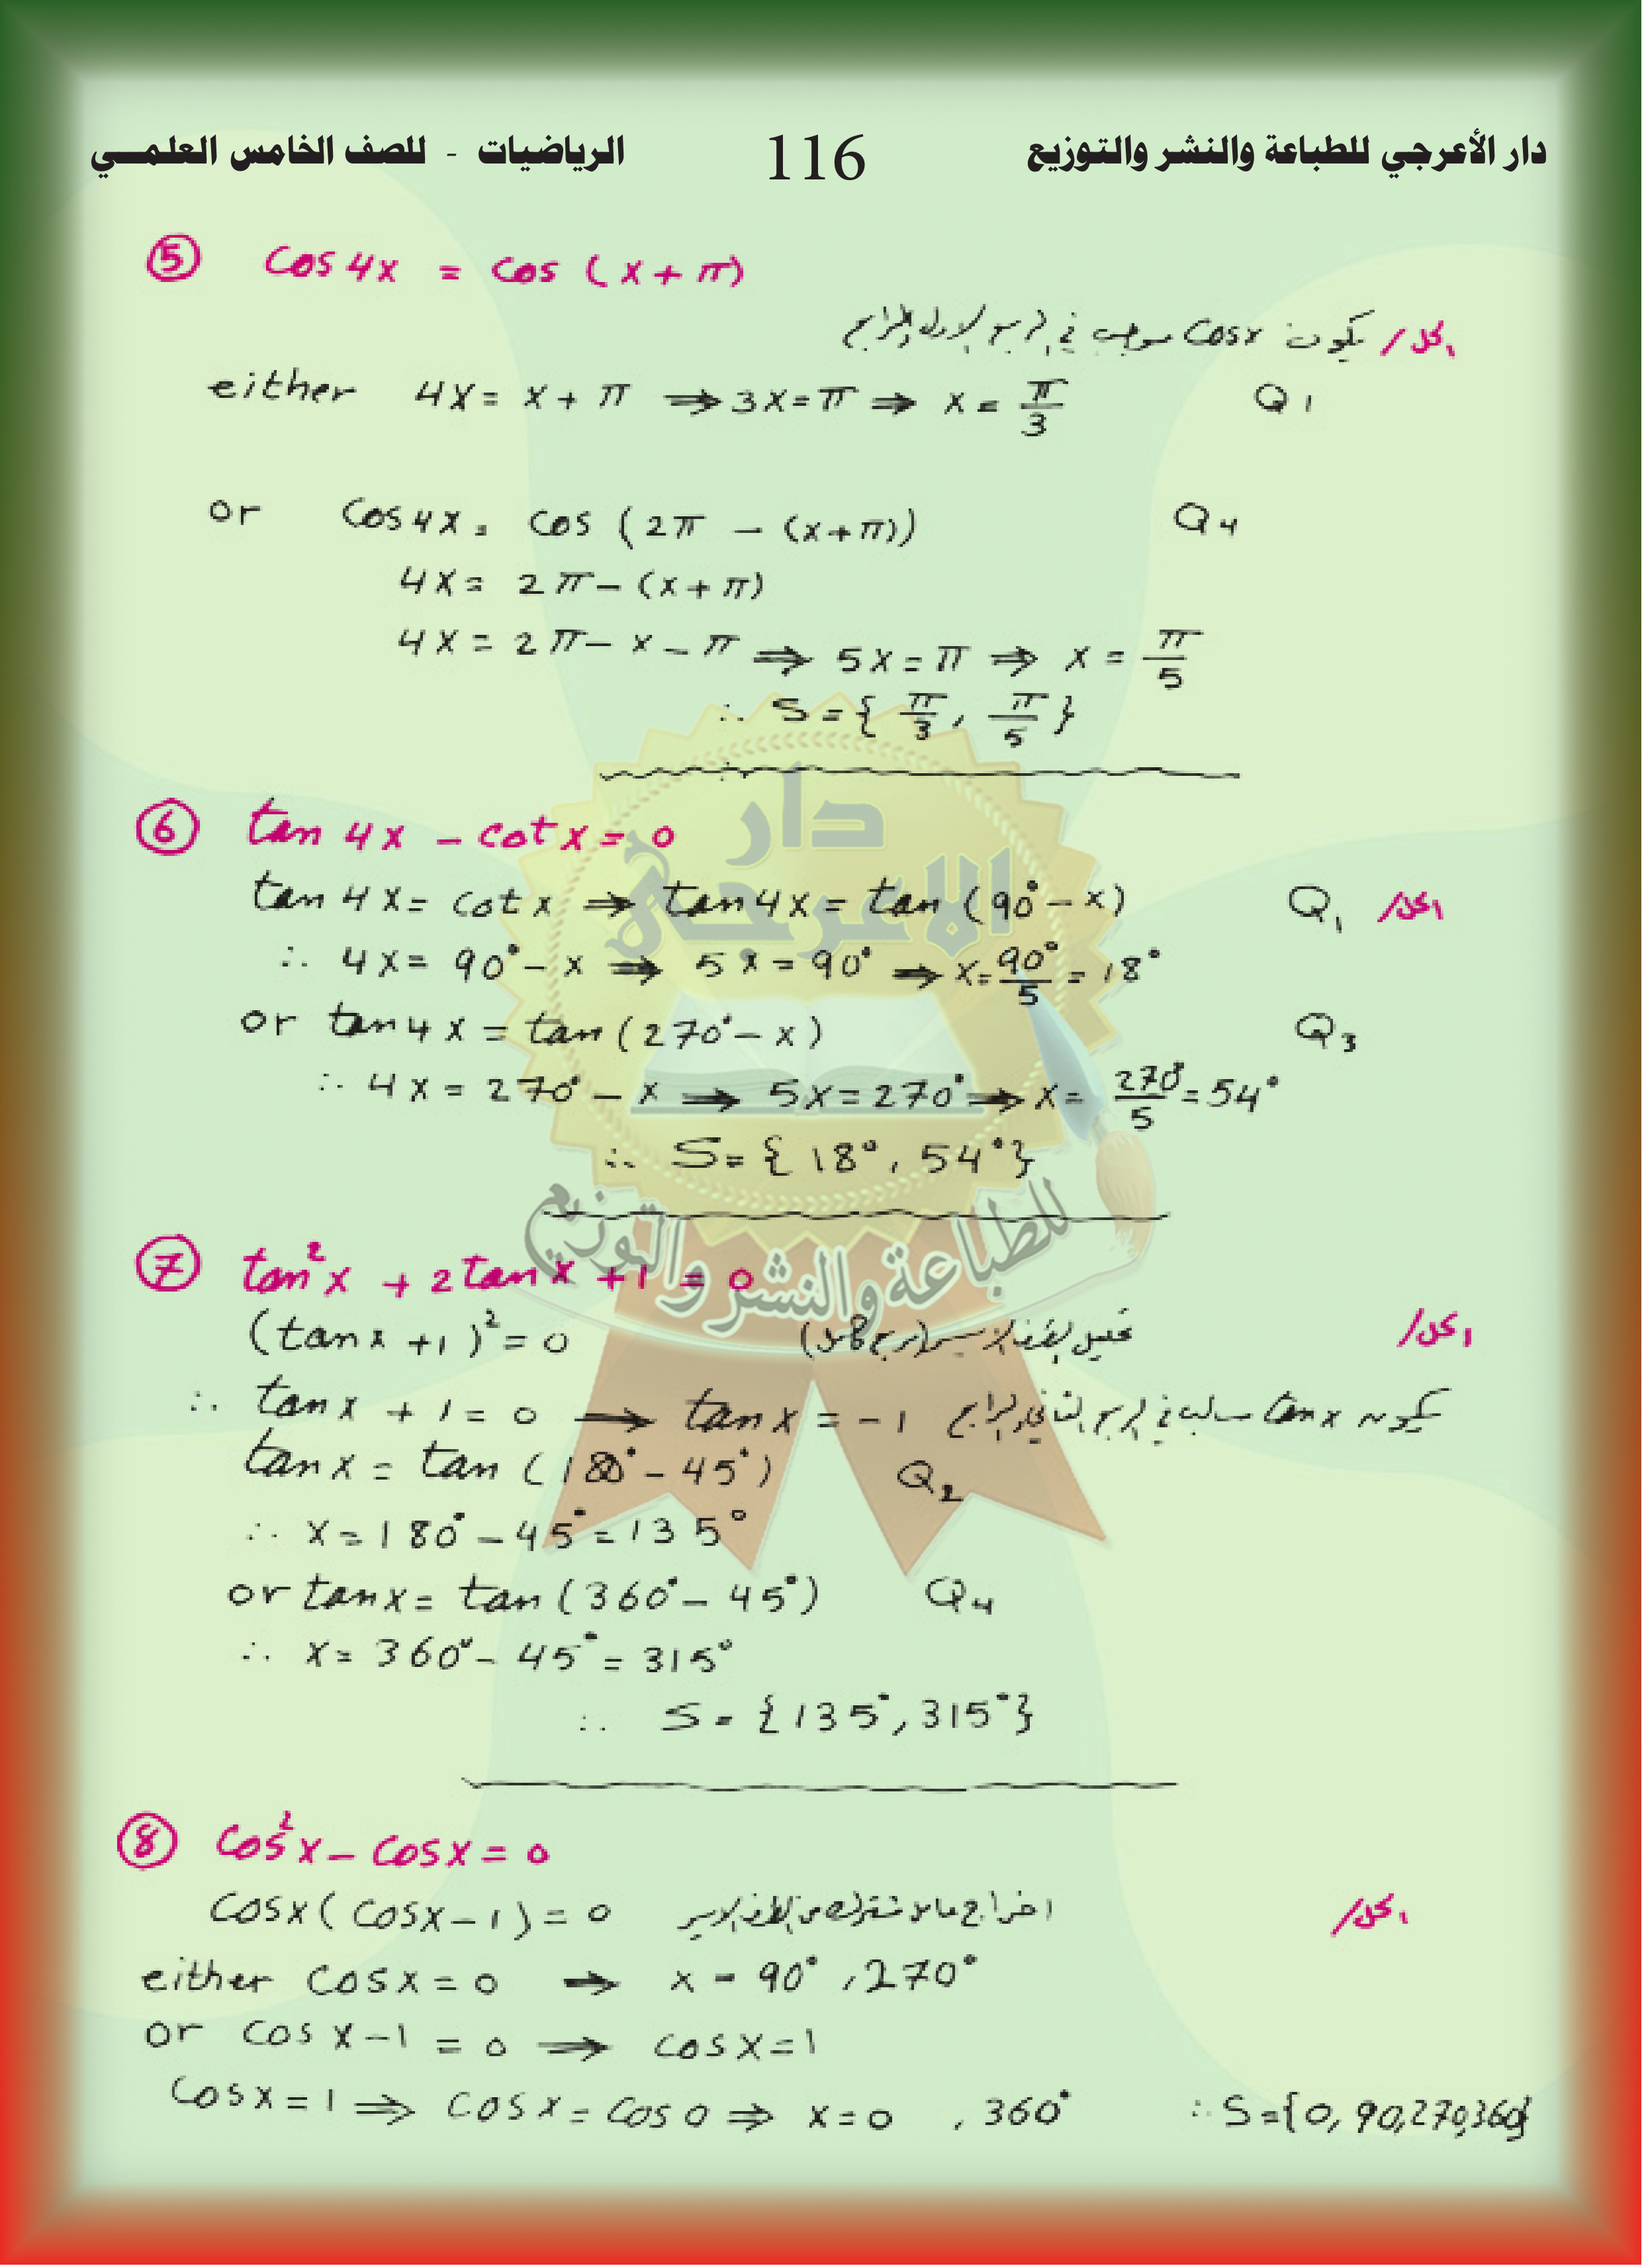 دار الأعرجي للطباعة والنشر والتوزيع 116 الرياضيات - للصف الخامس العلمي
⑤ cos 4x = cos (x + π)
الحل / يكون cosx موجب في الربع الاول والرابع
either 4x = x + π ⇒ 3x = π ⇒ x = π/3 Q1
or cos 4x = cos (2π - (x+π)) Q4
4x = 2π - (x + π)
4x = 2π - x - π ⇒ 5x = π ⇒ x = π/5
∴ S = { π/3 , π/5 }
⑥ tan 4x - cot x = 0
tan 4x = cot x ⇒ tan 4x = tan (90° - x) Q1 الحل/
∴ 4x = 90° - x ⇒ 5x = 90° ⇒ x = 90°/5 = 18°
or tan 4x = tan (270° - x) Q3
∴ 4x = 270° - x ⇒ 5x = 270° ⇒ x = 270°/5 = 54°
∴ S = { 18° , 54° }
⑦ tan²x + 2tanx + 1 = 0
(tanx + 1)² = 0 الحل/
∴ tanx + 1 = 0 → tanx = -1 يكون tanx سالب في الربع الثاني والرابع
tanx = tan (180° - 45°) Q2
∴ x = 180° - 45° = 135°
or tanx = tan (360° - 45°) Q4
∴ x = 360° - 45° = 315°
∴ S = {135° , 315°}
⑧ cos²x - cosx = 0
cosx (cosx - 1) = 0 الحل/
either cosx = 0 → x = 90° , 270°
or cos x - 1 = 0 ⇒ cosx = 1
cosx = 1 ⇒ cosx = cos 0 ⇒ x = 0 , 360° ∴ S = {0, 90, 270, 360}
دار
الاعرجي
للطباعة والنشر والتوزيع